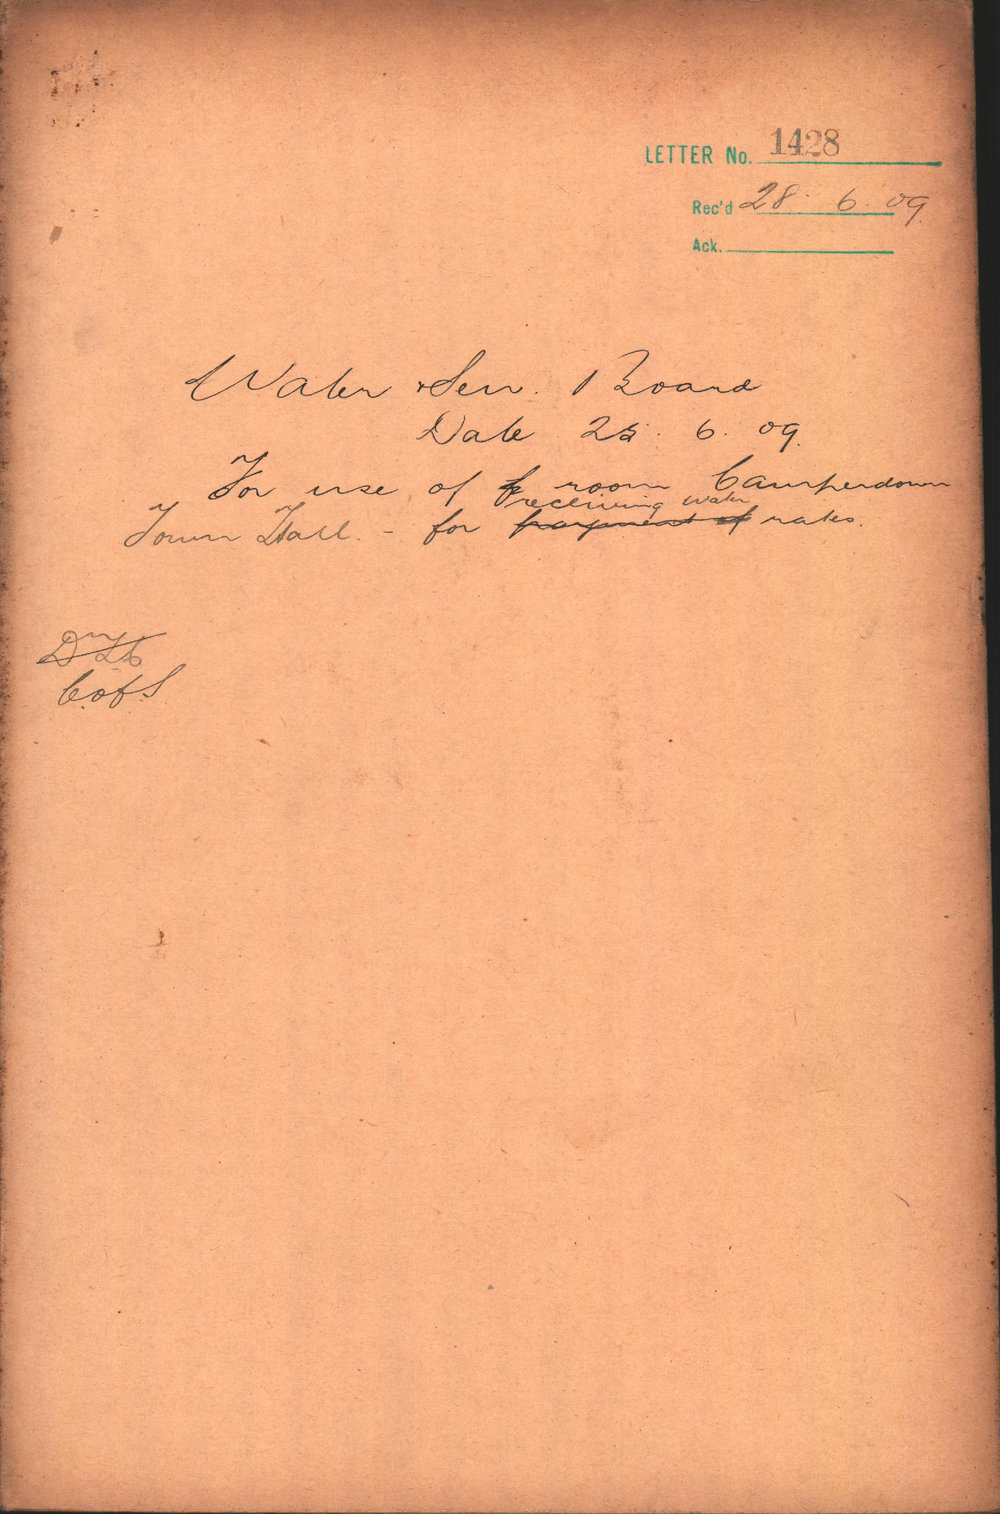 LETTER No. 1428
Rec'd 28. 6. 09.
Ack.
Water & Sew. Board
Date 25. 6. 09.
For use of room Camperdown
receiving water
Town Hall. - for payment of rates.
C.of S.